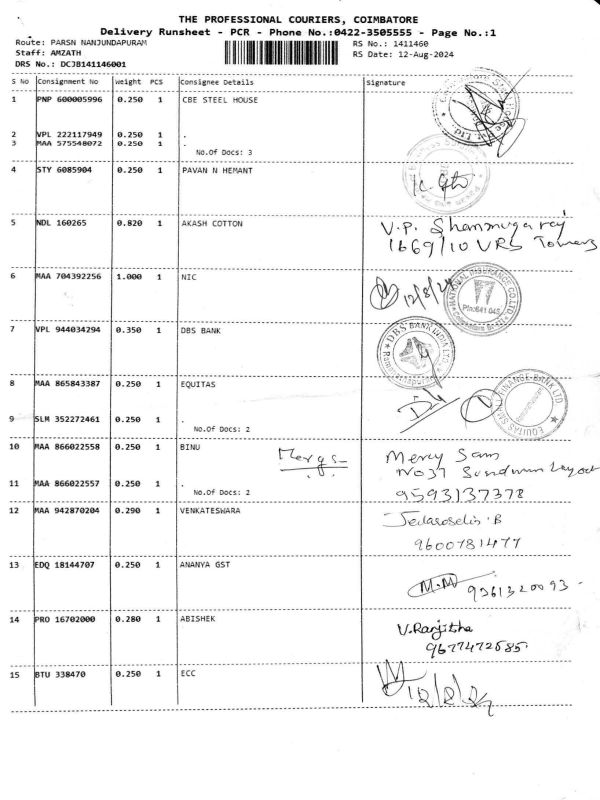 THE PROFESSIONAL COURIERS, COIMBATORE
Delivery Runsheet - PCR - Phone No.:0422-3505555 - Page No.:1
Route: PARSN NANJUNDAPURAM
Staff: AMZATH
DRS No.: DCJB141146001
RS No.: 1411460
RS Date: 12-Aug-2024
S No Consignment No Weight PCS Consignee Details Signature
1 PNP 600005996 0.250 1 CBE STEEL HOUSE
2 VPL 222117949 0.250 1 .
3 MAA 575548072 0.250 1 .
No.Of Docs: 3
4 STY 6085904 0.250 1 PAVAN N HEMANT
5 NDL 160265 0.820 1 AKASH COTTON
V.P. Shanmugaraj
1669/10 VRS Towers
6 MAA 704392256 1.000 1 NIC
12/8/24
NATIONAL INSURANCE CO.LTD.
PIN:641 045
7 VPL 944034294 0.350 1 DBS BANK
DBS BANK INDIA LTD
8 MAA 865843387 0.250 1 EQUITAS
EQUITAS SMALL FINANCE BANK LTD
9 SLM 352272461 0.250 1 .
No.Of Docs: 2
10 MAA 866022558 0.250 1 BINU
Mercy Sam
No 37
11 MAA 866022557 0.250 1 .
No.Of Docs: 2
9593137378
12 MAA 942870204 0.290 1 VENKATESWARA
9600781477
13 EDQ 18144707 0.250 1 ANANYA GST
M.M 9361320093
14 PRO 16702000 0.280 1 ABISHEK
V.Ranjitha
9677472585
15 BTU 338470 0.250 1 ECC